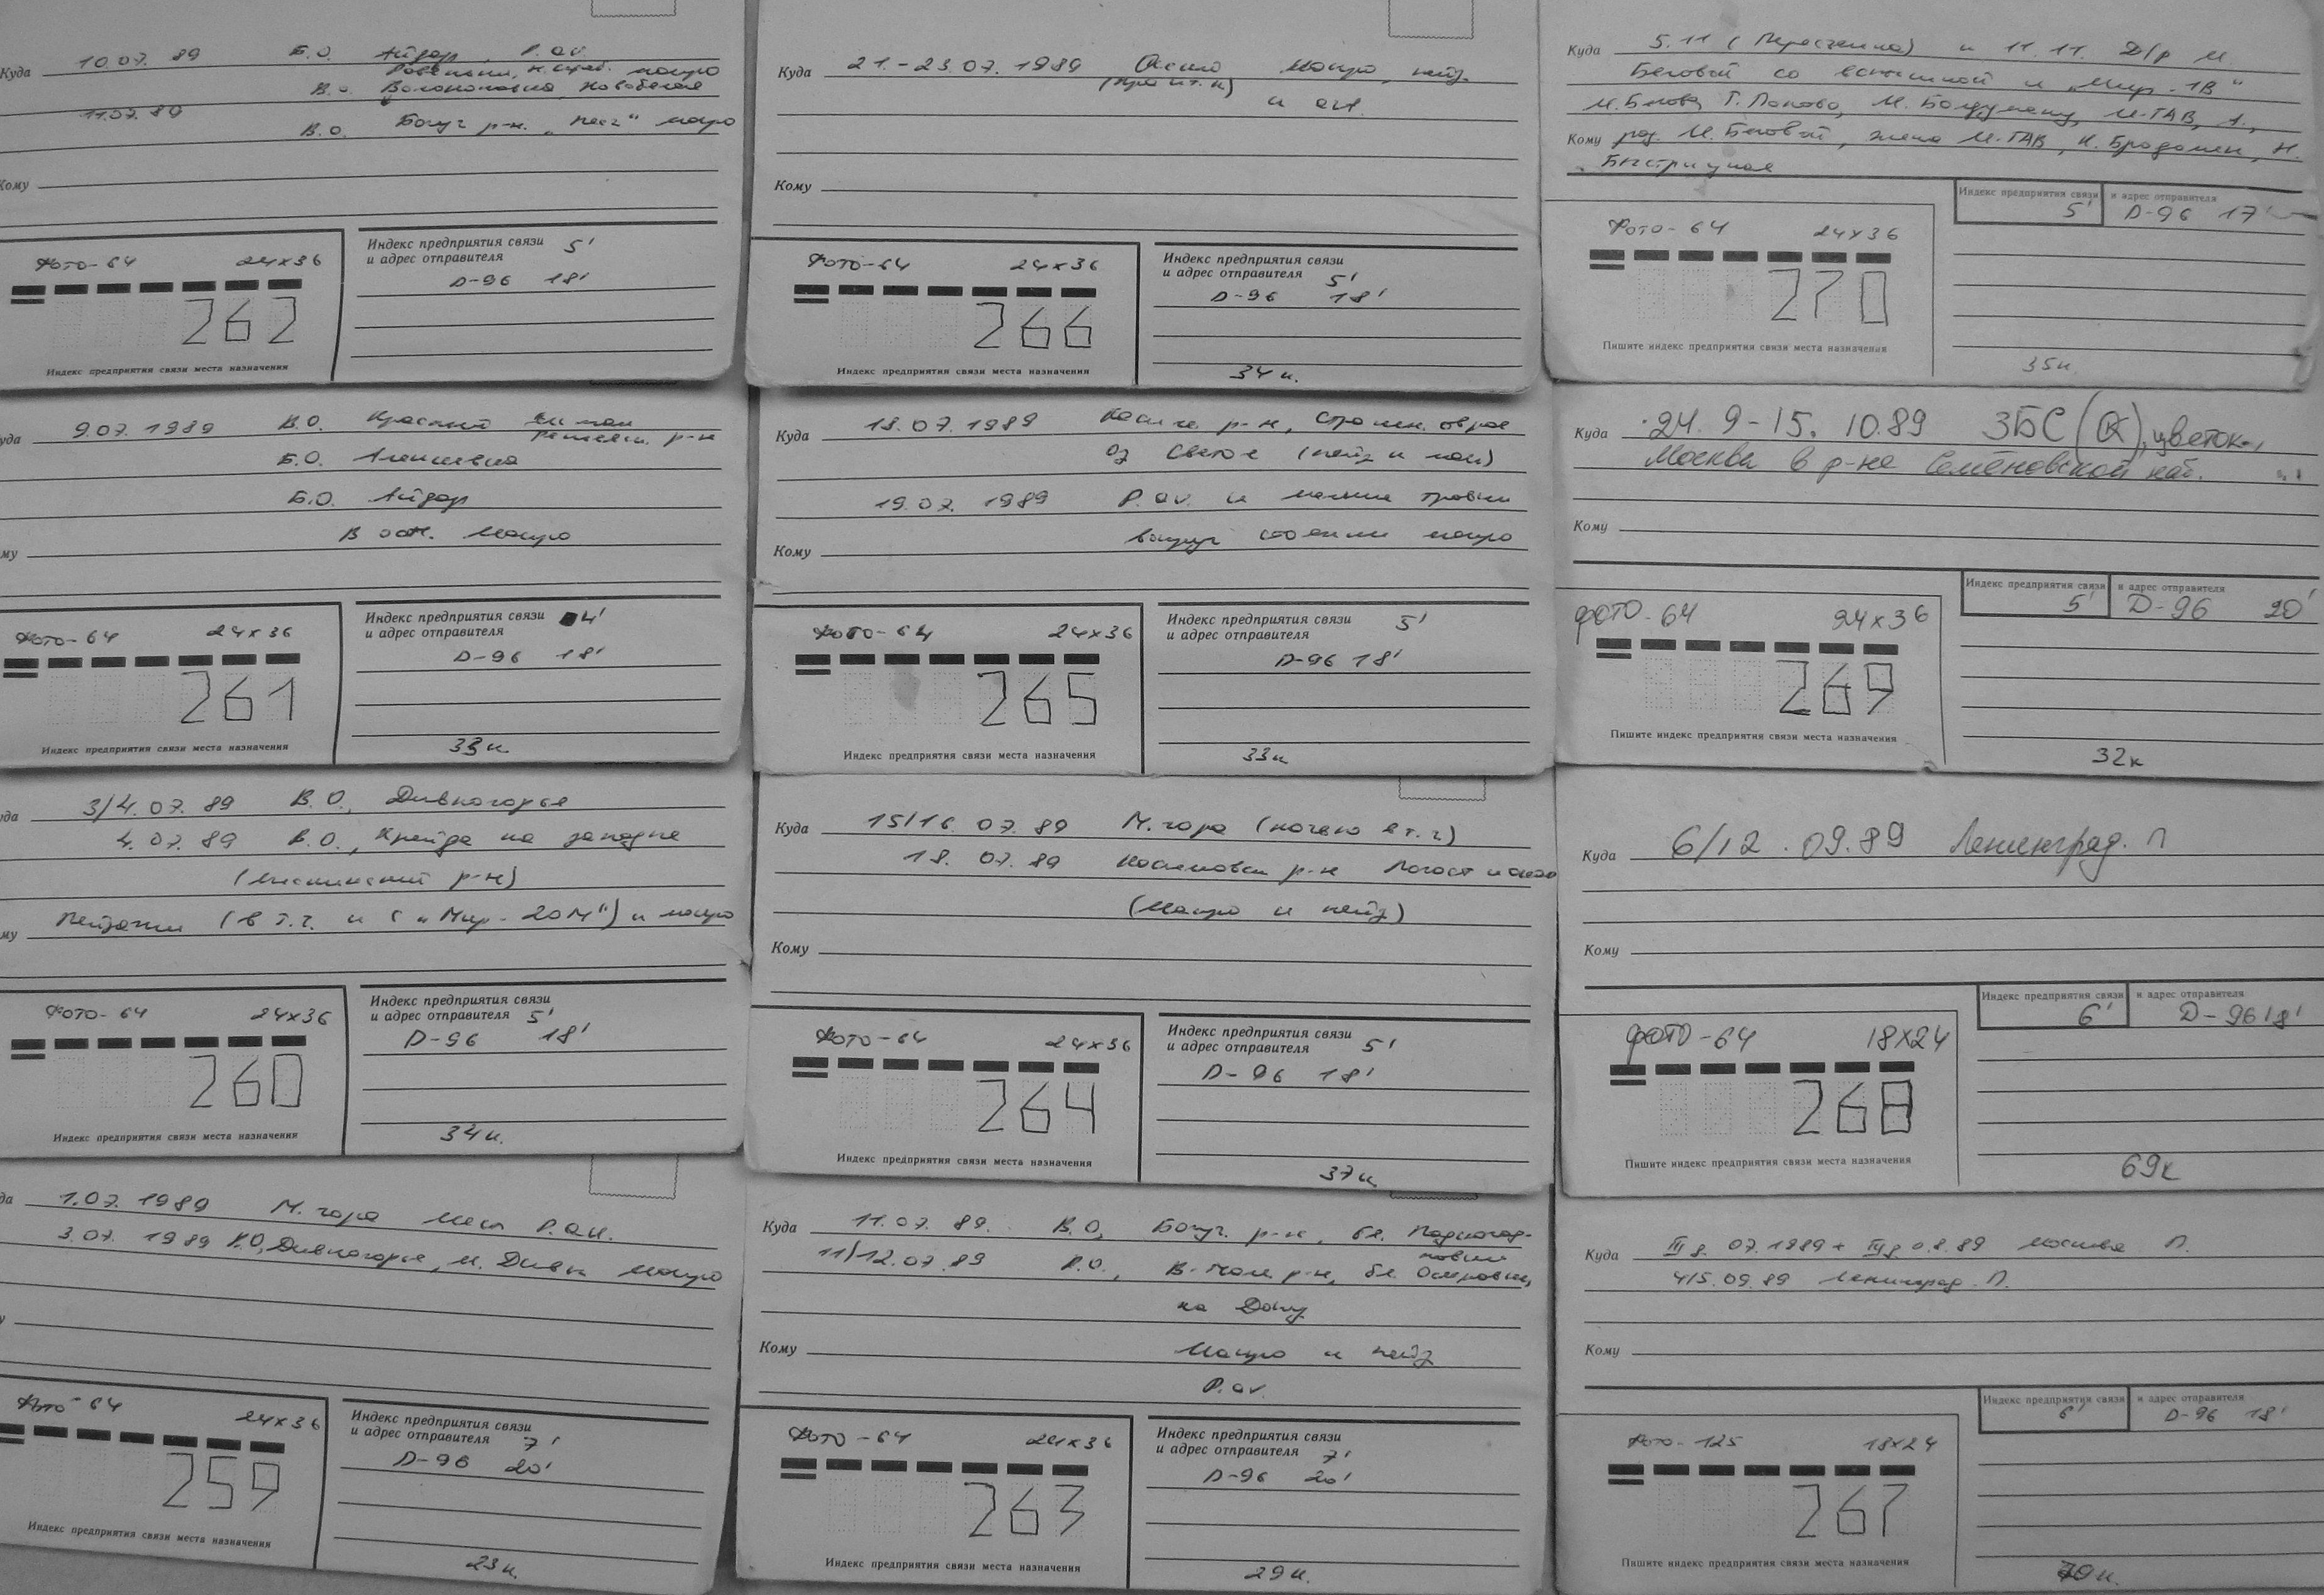 10.07. 89 Б.О. Айдар, P. av.
Куда
В.О.
11.07. 89
В.О. Богуч р-н. макро
Кому
Индекс предприятия связи 5'
и адрес отправителя
Фото-64 24x36
D-96 18'
262
Индекс предприятия связи места назначения
Куда 21.-23.07. 1989 макро, пейз.
и
Кому
Индекс предприятия связи
и адрес отправителя 5'
Фото-64 24x36
D-96 18'
266
Индекс предприятия связи места назначения
34 к.
Куда 5.11 (Пересъемка) и 11.11. Д/р М.
Беговой со вспышкой и „Мир-1В"
М. М-ГАВ,
Кому род. М. Беговой, жена М-ГАВ, Н.
Быстрицкая
Индекс предприятия связи и адрес отправителя
5' D-96 17'
Фото-64 24x36
270
Пишите индекс предприятия связи места назначения
35к
уда 9.07. 1989 В.О. Красный
р-н
Б.О.
Б.О. Айдар
В осн. Макро
му
Индекс предприятия связи 4'
и адрес отправителя
Фото-64 24x36
D-96 18'
261
Индекс предприятия связи места назначения
33к.
Куда 18.07. 1989 р-н,
оз Святое (пейз и мак)
19.07. 1989 P. av. и
Кому вокруг стоянки макро
Индекс предприятия связи 5'
и адрес отправителя
Фото-64 24x36
D-96 18'
265
Индекс предприятия связи места назначения
33к
Куда 24. 9-15. 10.89 ЗБС (К), цветок.,
Москва в р-не Семёновской наб.
Кому
Индекс предприятия связи и адрес отправителя
5' D-96 20'
фото-64 24x36
269
Пишите индекс предприятия связи места назначения
32к
уда 3/4.07. 89 В.О., Дивногорье
4.07. 89 В.О., Крейда на западне
(Лискинский р-н)
му Пейзажи (в т.ч. и с „Мир-20М") и макро
Индекс предприятия связи
и адрес отправителя 5'
Фото-64 24x36
D-96 18'
260
Индекс предприятия связи места назначения
34к.
Куда 15/16. 07. 89 М. гора (ночью в т.ч)
18. 07. 89 Касимовск р-н Погост и около
(Макро и пейз)
Кому
Индекс предприятия связи 5'
и адрес отправителя
Фото-64 24x36
D-96 18'
264
Индекс предприятия связи места назначения
37к
Куда 6/12. 09. 89 Ленинград. П
Кому
Индекс предприятия связи и адрес отправителя
6' D-96 18'
фото-64 18x24
268
Пишите индекс предприятия связи места назначения
69к
да 1.07. 1989 М. гора
3.07. 1989 В.О, Дивногорье, м. Дивы макро
у
Индекс предприятия связи
и адрес отправителя 7'
Фото-64 24x36
D-96 20'
259
Индекс предприятия связи места назначения
23к.
Куда 11.07. 89. В.О, Богуч. р-н, бл.
11/12.07.89 р-н, бл.
на Дону
Кому Макро и пейз
P. av.
Индекс предприятия связи
и адрес отправителя 7'
Фото-64 24x36
D-96 20'
263
Индекс предприятия связи места назначения
29к.
Куда III д. 07.1989 + 08.89 Москва П.
4/5.09.89 Ленинград. П.
Кому
Индекс предприятия связи и адрес отправителя
6' D-96 18'
Фото-125 18x24
267
Пишите индекс предприятия связи места назначения
70к.